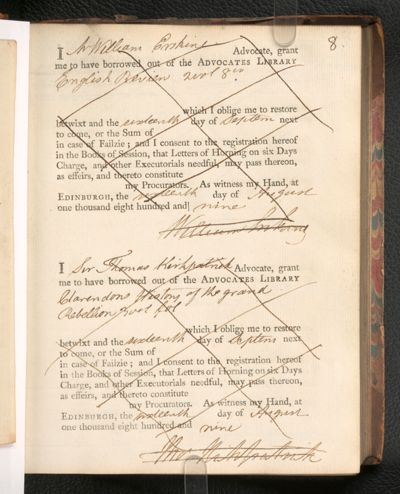 8.
I Mr William Erskine Advocate, grant
me to have borrowed out of the ADVOCATES LIBRARY
English Review 2 vol 8vo
which I oblige me to restore
betwixt and the sixteenth day of Septem next
to come, or the Sum of
in case of Failzie; and I consent to the registration hereof
in the Books of Session, that Letters of Horning on six Days
Charge, and other Executorials needful, may pass thereon,
as effeirs, and thereto constitute
my Procurators. As witness my Hand, at
EDINBURGH, the sixteenth day of August
one thousand eight hundred and nine
William Erskine
I Sir Thomas Kirkpatrick Advocate, grant
me to have borrowed out of the ADVOCATES LIBRARY
Clarendons History of the grand
Rebellion vol fol
which I oblige me to restore
betwixt and the sixteenth day of Septem next
to come, or the Sum of
in case of Failzie; and I consent to the registration hereof
in the Books of Session, that Letters of Horning on six Days
Charge, and other Executorials needful, may pass thereon,
as effeirs, and thereto constitute
my Procurators. As witness my Hand, at
EDINBURGH, the sixteenth day of August
one thousand eight hundred and nine
Tho Kirkpatrick